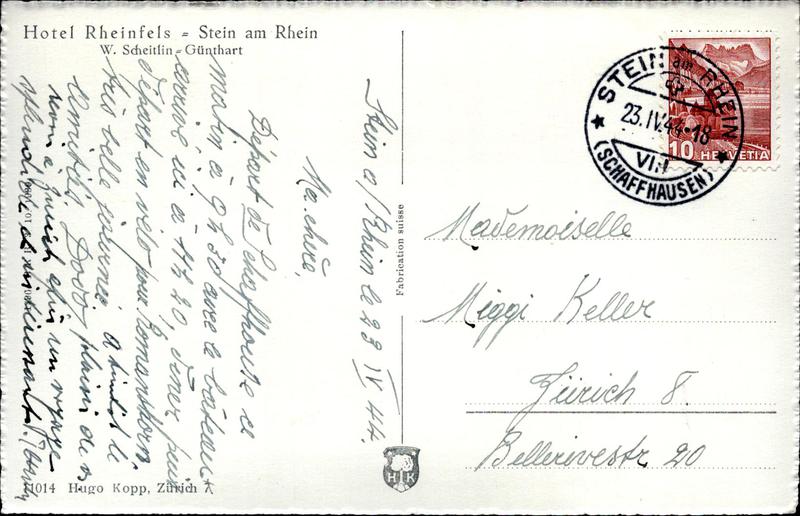 Hotel Rheinfels = Stein am Rhein
W. Scheitlin=Günthart
Stein a/Rhein le 23 IV 44.
Ma chère,
Départ de Schaffhouse ce
matin à 9 h 30 avec le bateau
arrivé ici à 11 h 20, dîner puis
départ en vélo pour Romanshorn
très belle journée, à bientôt
Amitiés Dodo
à Zurich un voyage
Fabrication suisse
STEIN am RHEIN
23.IV.44-18
VIII
(SCHAFFHAUSEN)
10 HELVETIA
Mademoiselle
Miggi Keller
Zürich 8.
Bellerivestr 20
HK
11014 Hugo Kopp, Zürich 7